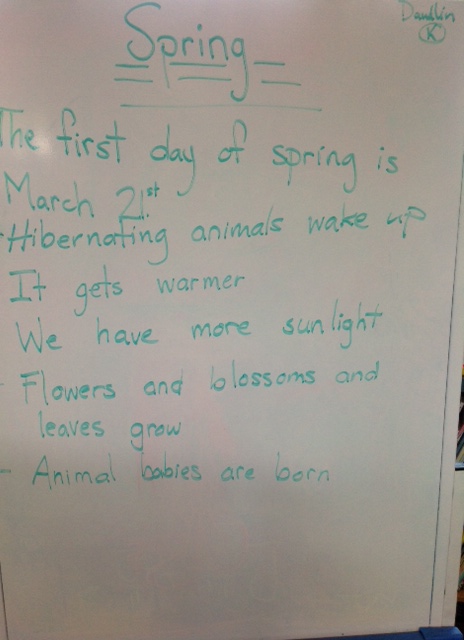 Spring
K
The first day of spring is
March 21st.
- Hibernating animals wake up
It gets warmer
We have more sunlight
- Flowers and blossoms and
leaves grow
- Animal babies are born